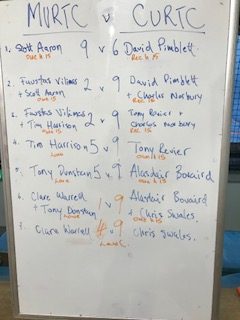 MURTC v CURTC
1. Scott Aaron 9 v 6 David Pimblett
Rec h 15
2. Faustas Vilimas 2 v 9 David Pimblett
+ Scott Aaron + Charles Norbury
Rec 15
3. Faustas Vilimas 2 v 9 Tony Revier +
+ Tim Harrison Charles Norbury
Rec 15
4. Tim Harrison 5 v 9 Tony Revier
Love
5. Tony Dunstan 5 v 9 Alasdair Bovaird
Love
6. Clare Warrell 1 v 9 Alastair Bovaird
+ Tony Dunstan + Chris Swales.
Love
7. Clare Warrell v 9 Chris Swales.